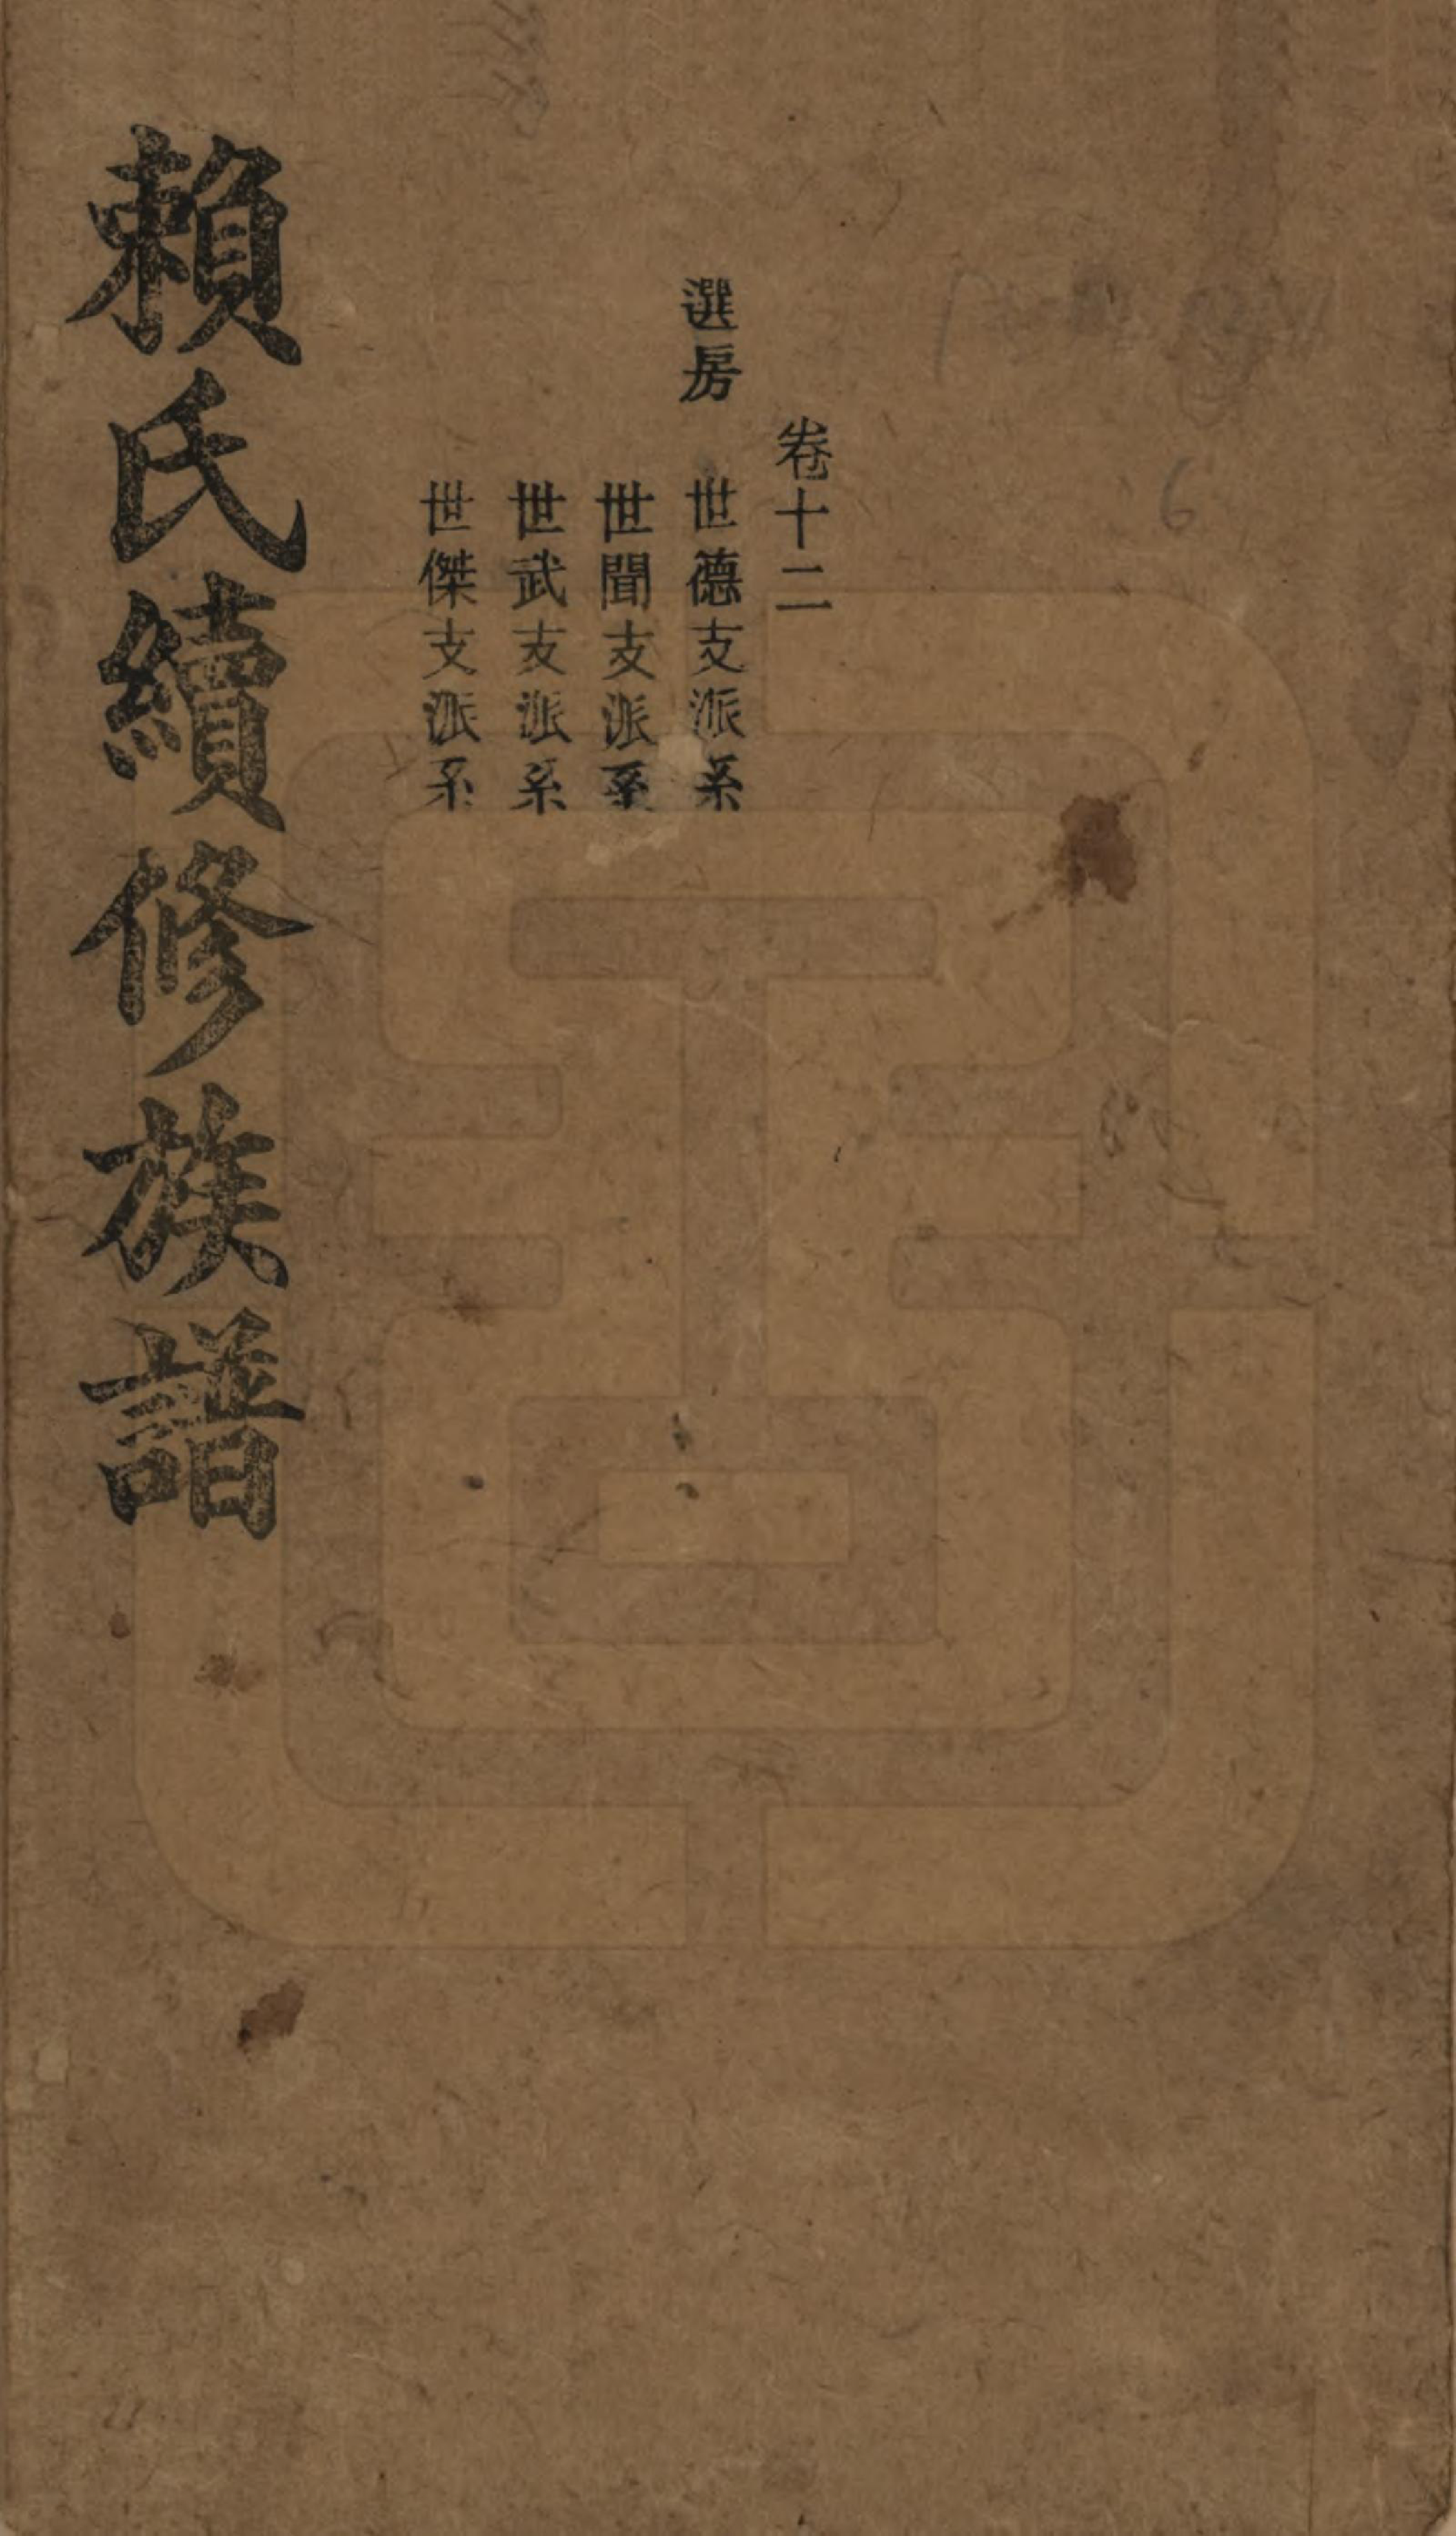 卷十二
選房 世德支派系
世聞支派系
世武支派系
世傑支派系
賴氏續修族譜
6